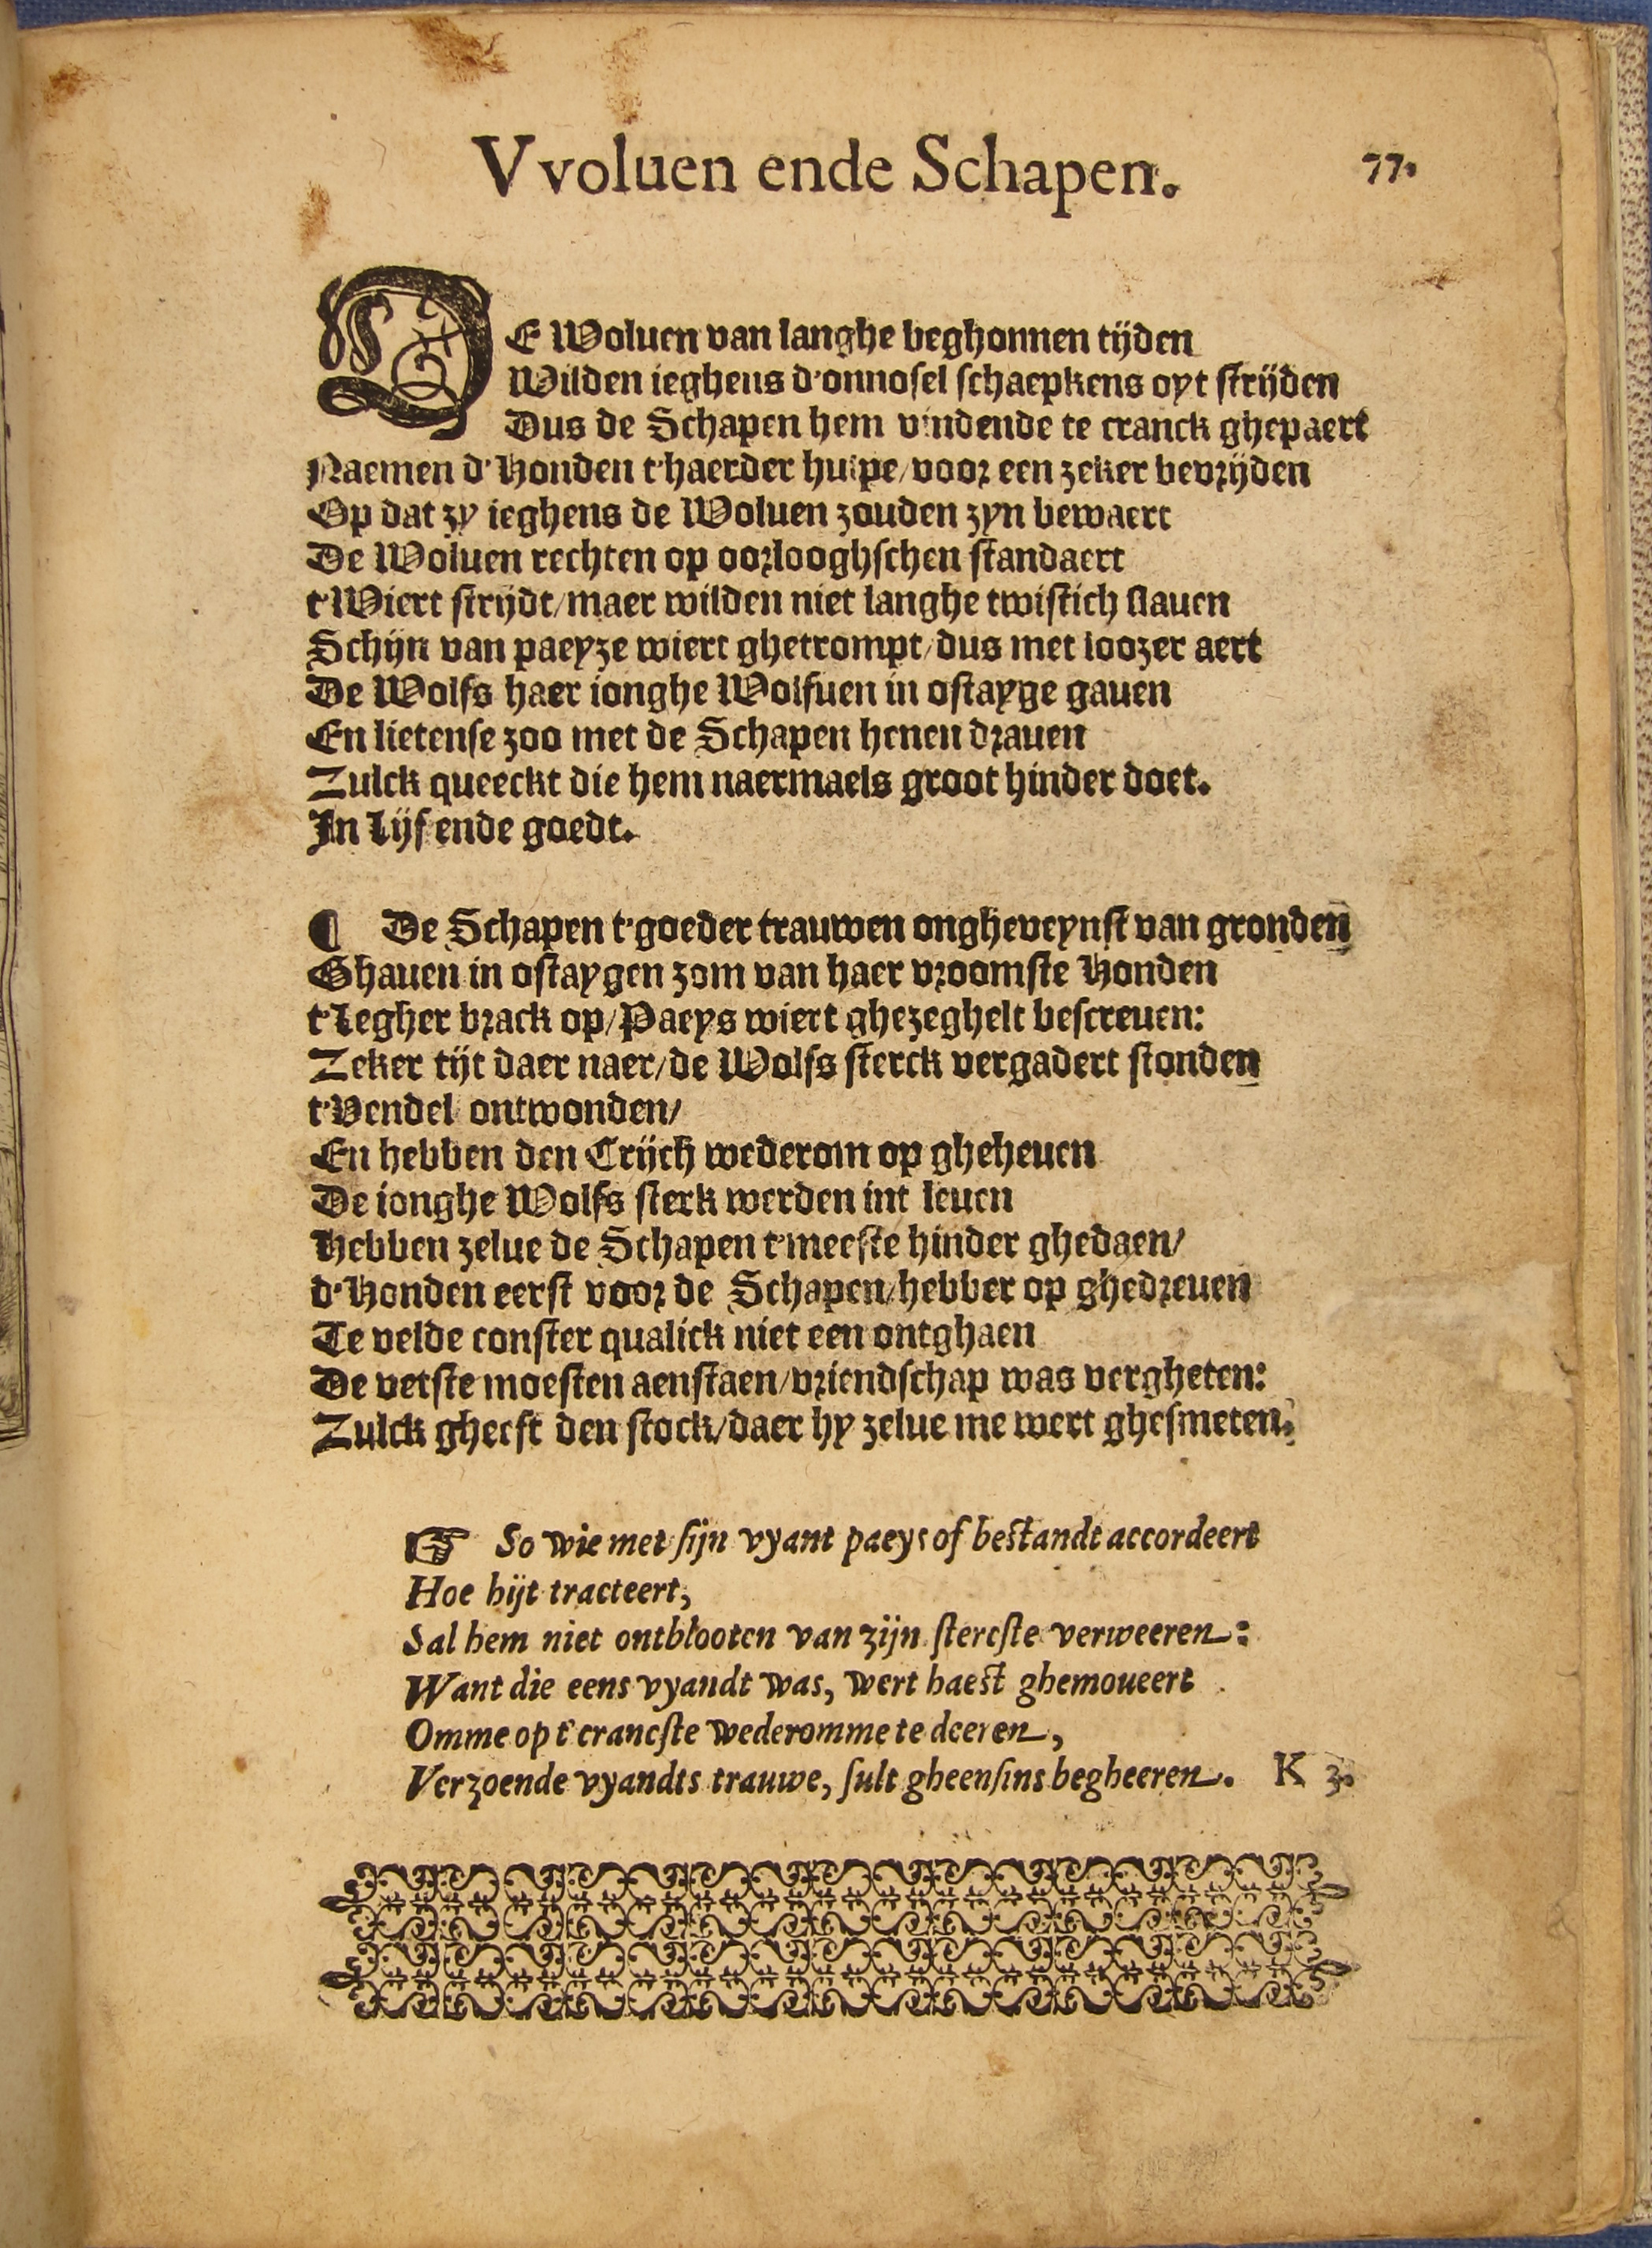 Vvoluen ende Schapen.
77.
DE Woluen van langhe beghonnen tijden
Wilden ieghens d'onnosel schaepkens oyt strijden
Dus de Schapen hem vindende te cranck ghepaert
Naemen d'Honden t'haerder hulpe/voor een zeker bevrijden
Op dat zy ieghens de Woluen zouden zyn bewaert
De Woluen rechten op oorlooghschen standaert
t'Wiert strijdt/maer wilden niet langhe twistich slauen
Schijn van paeyze wiert ghetrompt/dus met loozer aert
De Wolfs haer ionghe Wolfuen in ostayge gauen
En lietense zoo met de Schapen henen drauen
Zulck queeckt die hem naermaels groot hinder doet.
In Lijf ende goedt.
¶ De Schapen t'goeder trauwen ongheveynst van gronden
Ghauen in ostaygen zom van haer vroomste Honden
t'Legher brack op/Paeys wiert ghezeghelt bescreuen:
Zeker tijt daer naer/de Wolfs sterck vergadert stonden
t'Vendel ontwonden/
En hebben den Crijch wederom op gheheuen
De ionghe Wolfs sterk werden int leuen
Hebben zelue de Schapen t'meeste hinder ghedaen/
d'Honden eerst voor de Schapen/hebber op ghedreuen
Te velde conster qualick niet een ontghaen
De vetste moesten aenstaen/vriendschap was vergheten:
Zulck gheeft den stock/daer hy zelue me wert ghesmeten.
☞ So wie met sijn vyant paeys of bestandt accordeert
Hoe hijt tracteert,
Sal hem niet ontblooten van zijn stercste verweeren:
Want die eens vyandt was, wert haest ghemoueert
Omme op t'crancste wederomme te deeren,
Verzoende vyandts trauwe, sult gheensins begheeren. K 3.